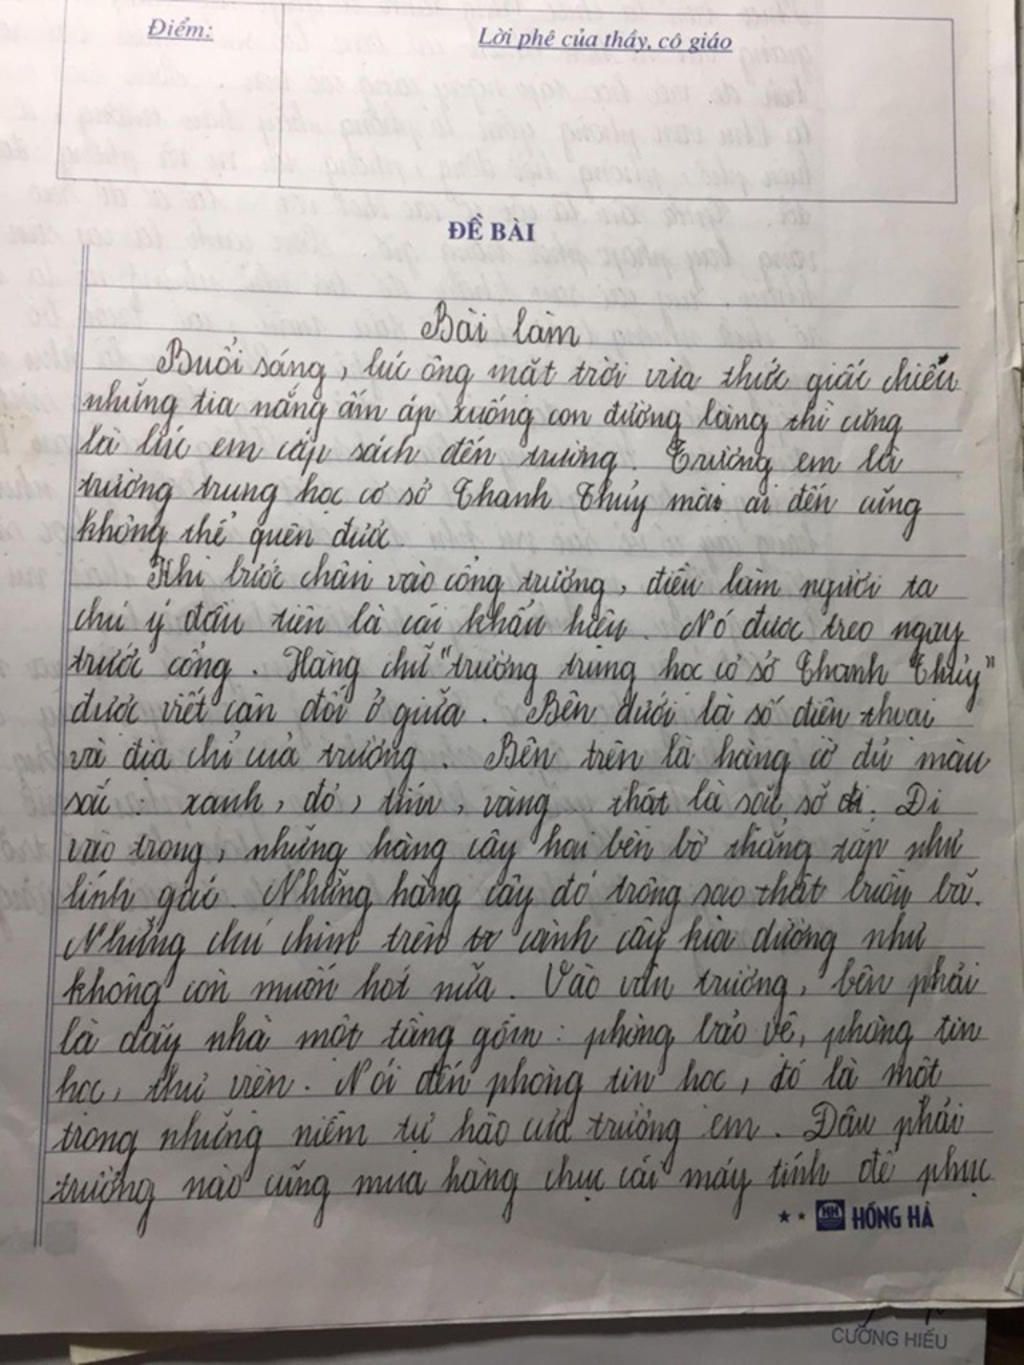 Điểm:
Lời phê của thầy, cô giáo
ĐỀ BÀI
Bài làm
Buổi sáng, lúc ông mặt trời vừa thức giấc chiếu
những tia nắng ấm áp xuống con đường làng thì cũng
là lúc em cắp sách đến trường. Trường em là
trường trung học cơ sở Thanh Thủy mà ai đến cũng
không thể quên được.
Khi bước chân vào cổng trường, điều làm người ta
chú ý đầu tiên là cái khẩu hiệu. Nó được treo ngay
trước cổng. Hàng chữ "trường trung học cơ sở Thanh Thủy"
được viết cân đối ở giữa. Bên dưới là số điện thoại
và địa chỉ của trường. Bên trên là hàng cờ đủ màu
sắc: xanh, đỏ, tím, vàng thật là sặc sỡ. Đi
vào trong, những hàng cây hai bên bờ thẳng tắp như
lính gác. Những hàng cây đó trông sao thật buồn bã.
Những chú chim trên cành cây kia dường như
không còn muốn hót nữa. Vào sân trường, bên phải
là dãy nhà một tầng gồm: phòng bảo vệ, phòng tin
học, thư viện. Nói đến phòng tin học, đó là một
trong những niềm tự hào của trường em. Đâu phải
trường nào cũng mua hàng chục cái máy tính để phục
HỒNG HÀ
CƯỜNG HIẾU